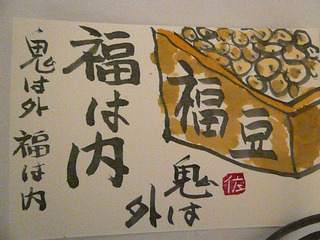 福豆
鬼は
外
佐
福は内
鬼は外 福は内